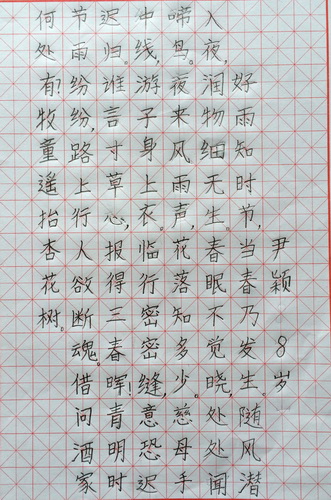 尹颖 8岁
好雨知时节,当春乃发生,随风潜
入夜,润物细无生。春眠不觉晓,处处闻
啼鸟。夜来风雨声,花落知多少。慈母手
中线,游子身上衣。临行密密缝,意恐迟
迟归。谁言寸草心,报得三春晖!青明时
节雨纷纷,路上行人欲断魂。借问酒家
何处有?牧童遥抬杏花树。